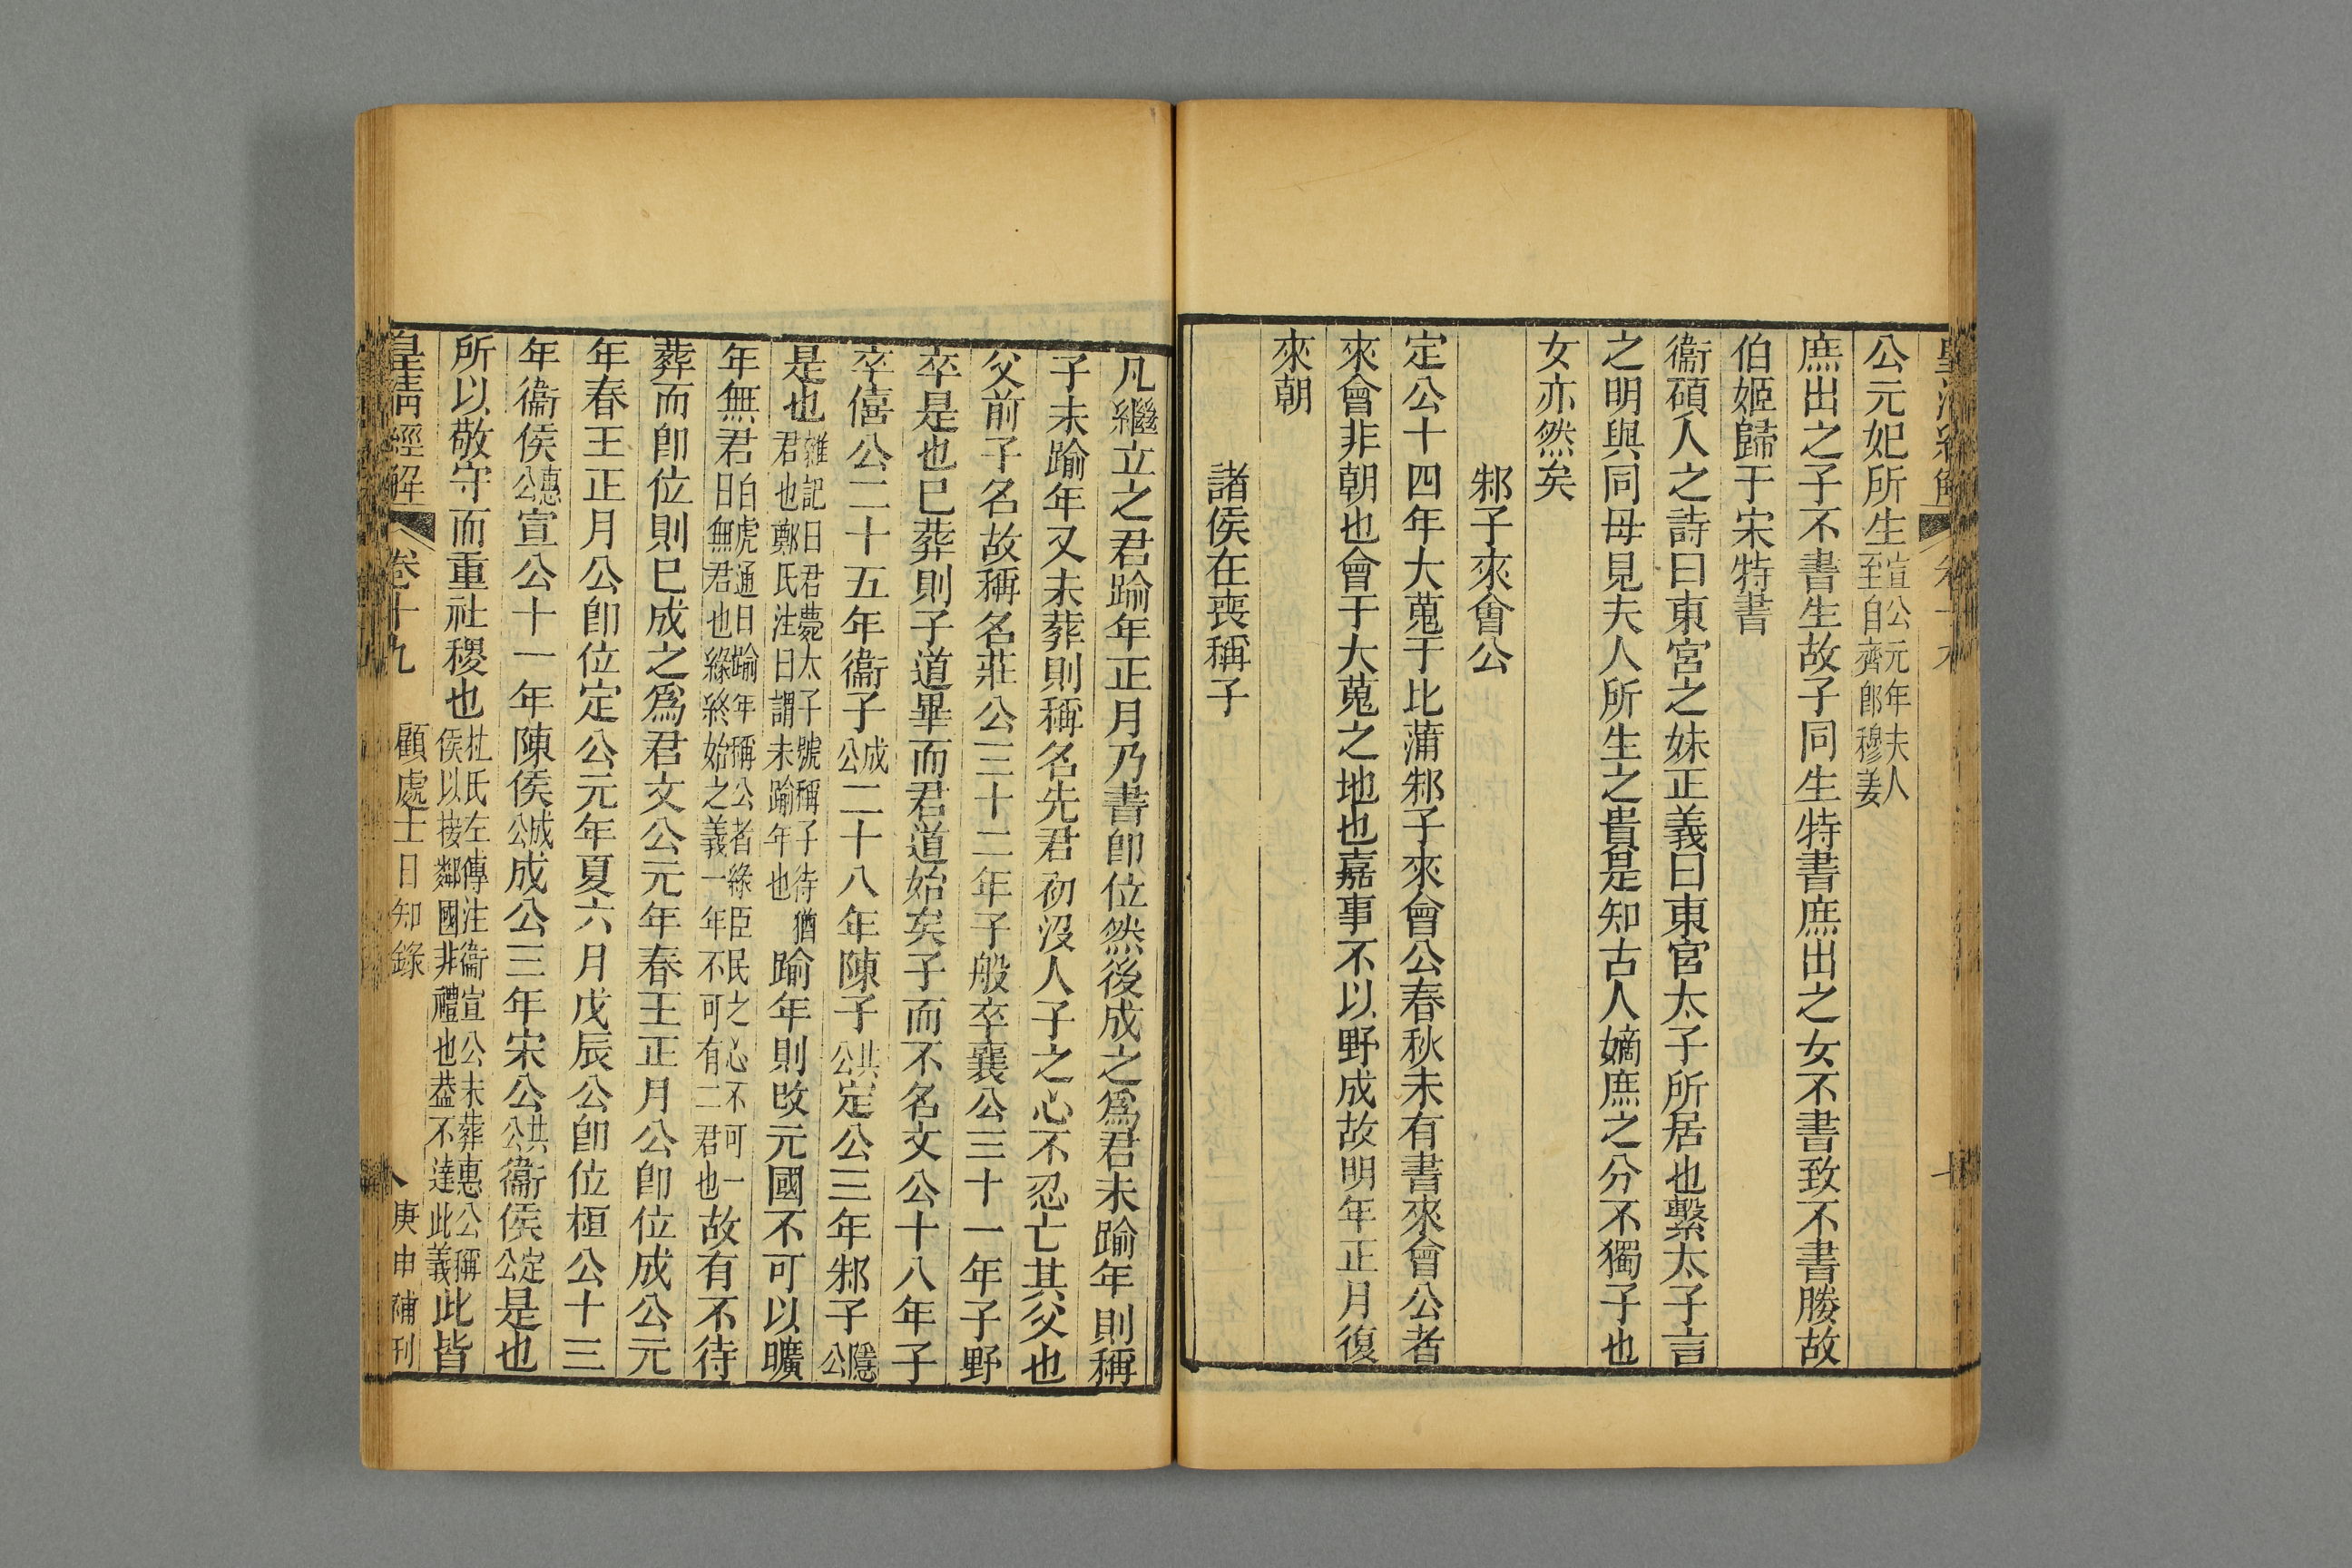 公元妃所生宣公元年夫人至自齊卽穆姜
庶出之子不書生故子同生特書庶出之女不書致不書媵故
伯姬歸于宋特書
衞碩人之詩曰東宮之妹正義曰東宮太子所居也繫太子言
之明與同母見夫人所生之貴是知古人嫡庶之分不獨子也
女亦然矣
邾子來會公
定公十四年大蒐于比蒲邾子來會公春秋未有書來會公者
來會非朝也會于大蒐之地也嘉事不以野成故明年正月復
來朝
諸侯在喪稱子
凡繼立之君踰年正月乃書卽位然後成之爲君未踰年則稱
子未踰年又未葬則稱名先君初沒人子之心不忍亡其父也
父前子名故稱名莊公三十二年子般卒襄公三十一年子野
卒是也已葬則子道畢而君道始矣子而不名文公十八年子
卒僖公二十五年衞子成公二十八年陳子共公定公三年邾子隱公
是也雜記曰君薨太子號稱子待猶君也鄭氏注曰謂未踰年也踰年則改元國不可以曠
年無君白虎通曰踰年稱公者緣臣民之心不可一日無君也緣終始之義一年不可有二君也故有不待
葬而卽位則已成之爲君文公元年春王正月公卽位成公元
年春王正月公卽位定公元年夏六月戊辰公卽位桓公十三
年衞侯惠公宣公十一年陳侯成公成公三年宋公共公衞侯定公是也
所以敬守而重社稷也杜氏左傳注衞宣公未葬惠公稱侯以接鄰國非禮也葢不達此義此皆
皇淸經解 卷十九 顧處士日知錄 八 庚申補刊